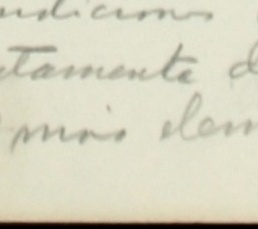 ndiciones
ctamente d
mis dem